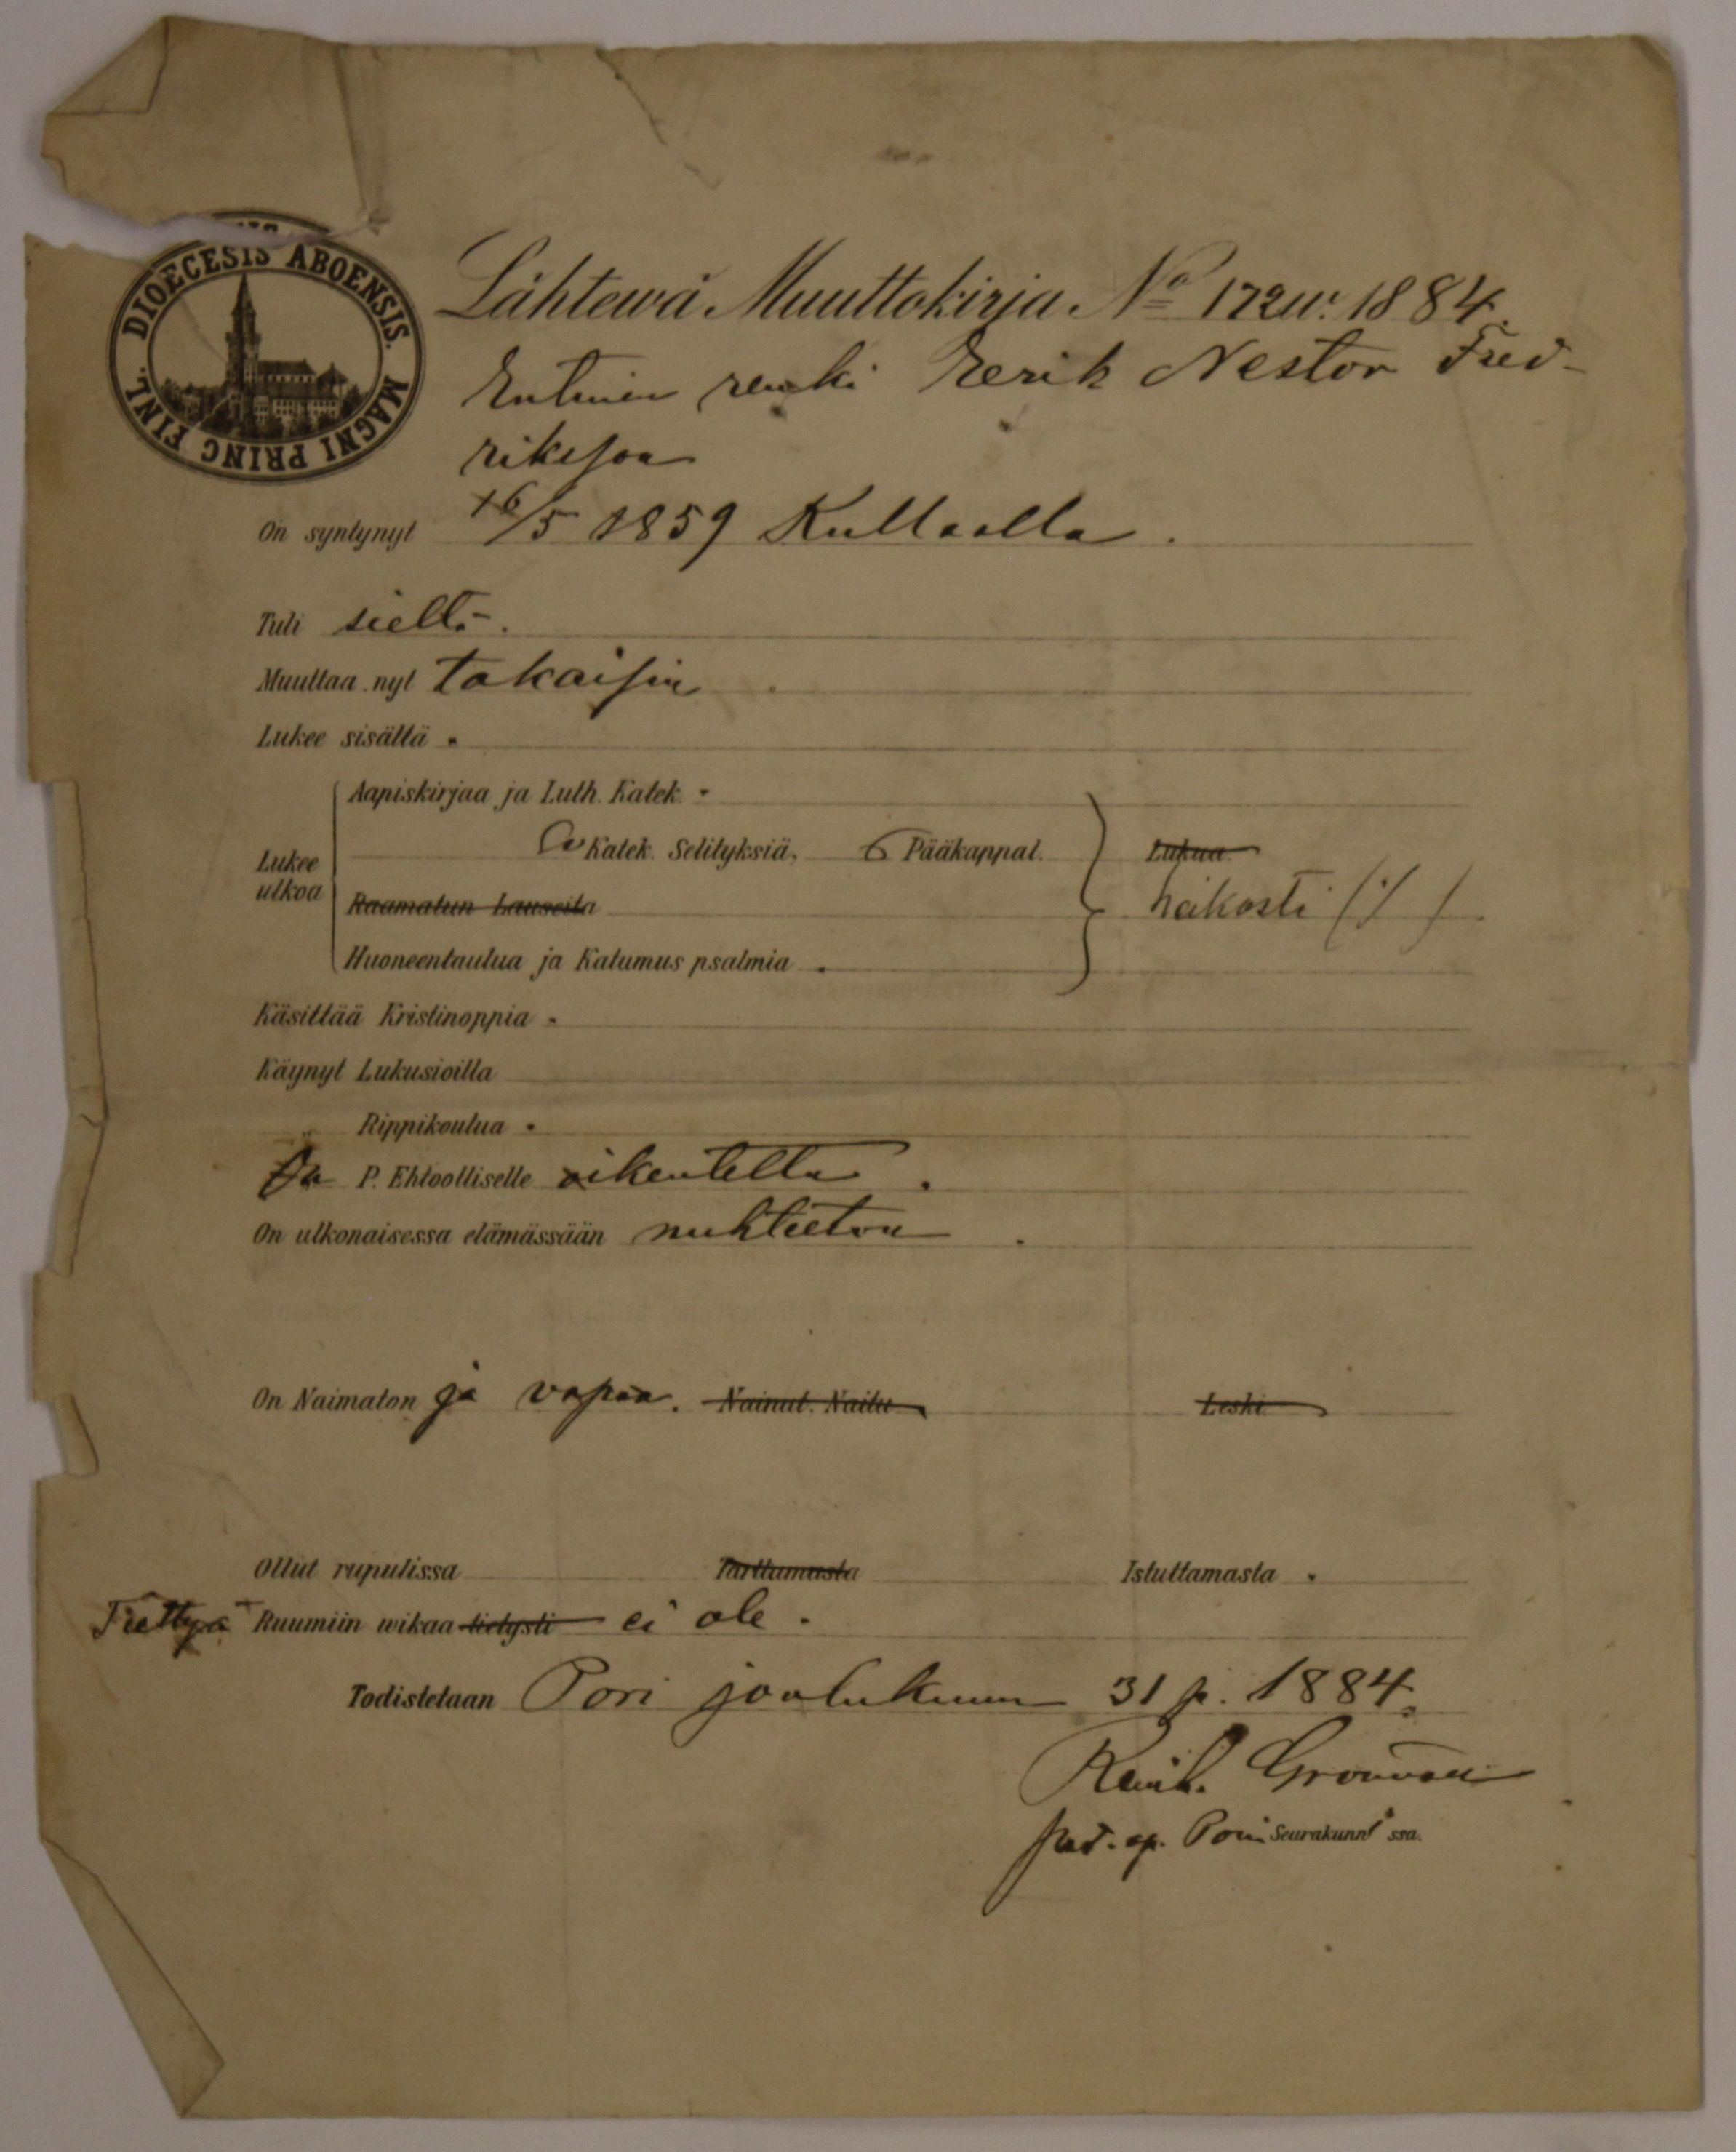 DIOECESIS ABOENSIS. MAGNI PRINC FINL.
Lähtewä Muuttokirja No 172 w. 1884.
Entinen renki Eerik Nestor Fred-
riksson
On syntynyt 16/5 1859 Kullaalla.
Tuli sieltä.
Muuttaa nyt takaisin
Lukee sisältä
Aapiskirjaa ja Luth. Katek.
Katek. Selityksiä, 6 Pääkappal. Lukua.
Lukee
ulkoa
Raamatun Lauseita heikosti (/. )
Huoneentaulua ja Katumus psalmia
Käsittää Kristinoppia
Käynyt Lukusioilla
Rippikoulua
On P. Ehtoolliselle oikeutettu.
On ulkonaisessa elämässään nuhteeton.
On Naimaton ja vapaa. Nainut. Naitu Leski.
Ollut rupulissa Tarttumasta Istuttamasta
Tiettyä Ruumiin wikaa tietysti ei ole.
Todistetaan Pori joulukuun 31 p. 1884.
Reinh. Grönvall
past. ap. Porin Seurakunnassa.